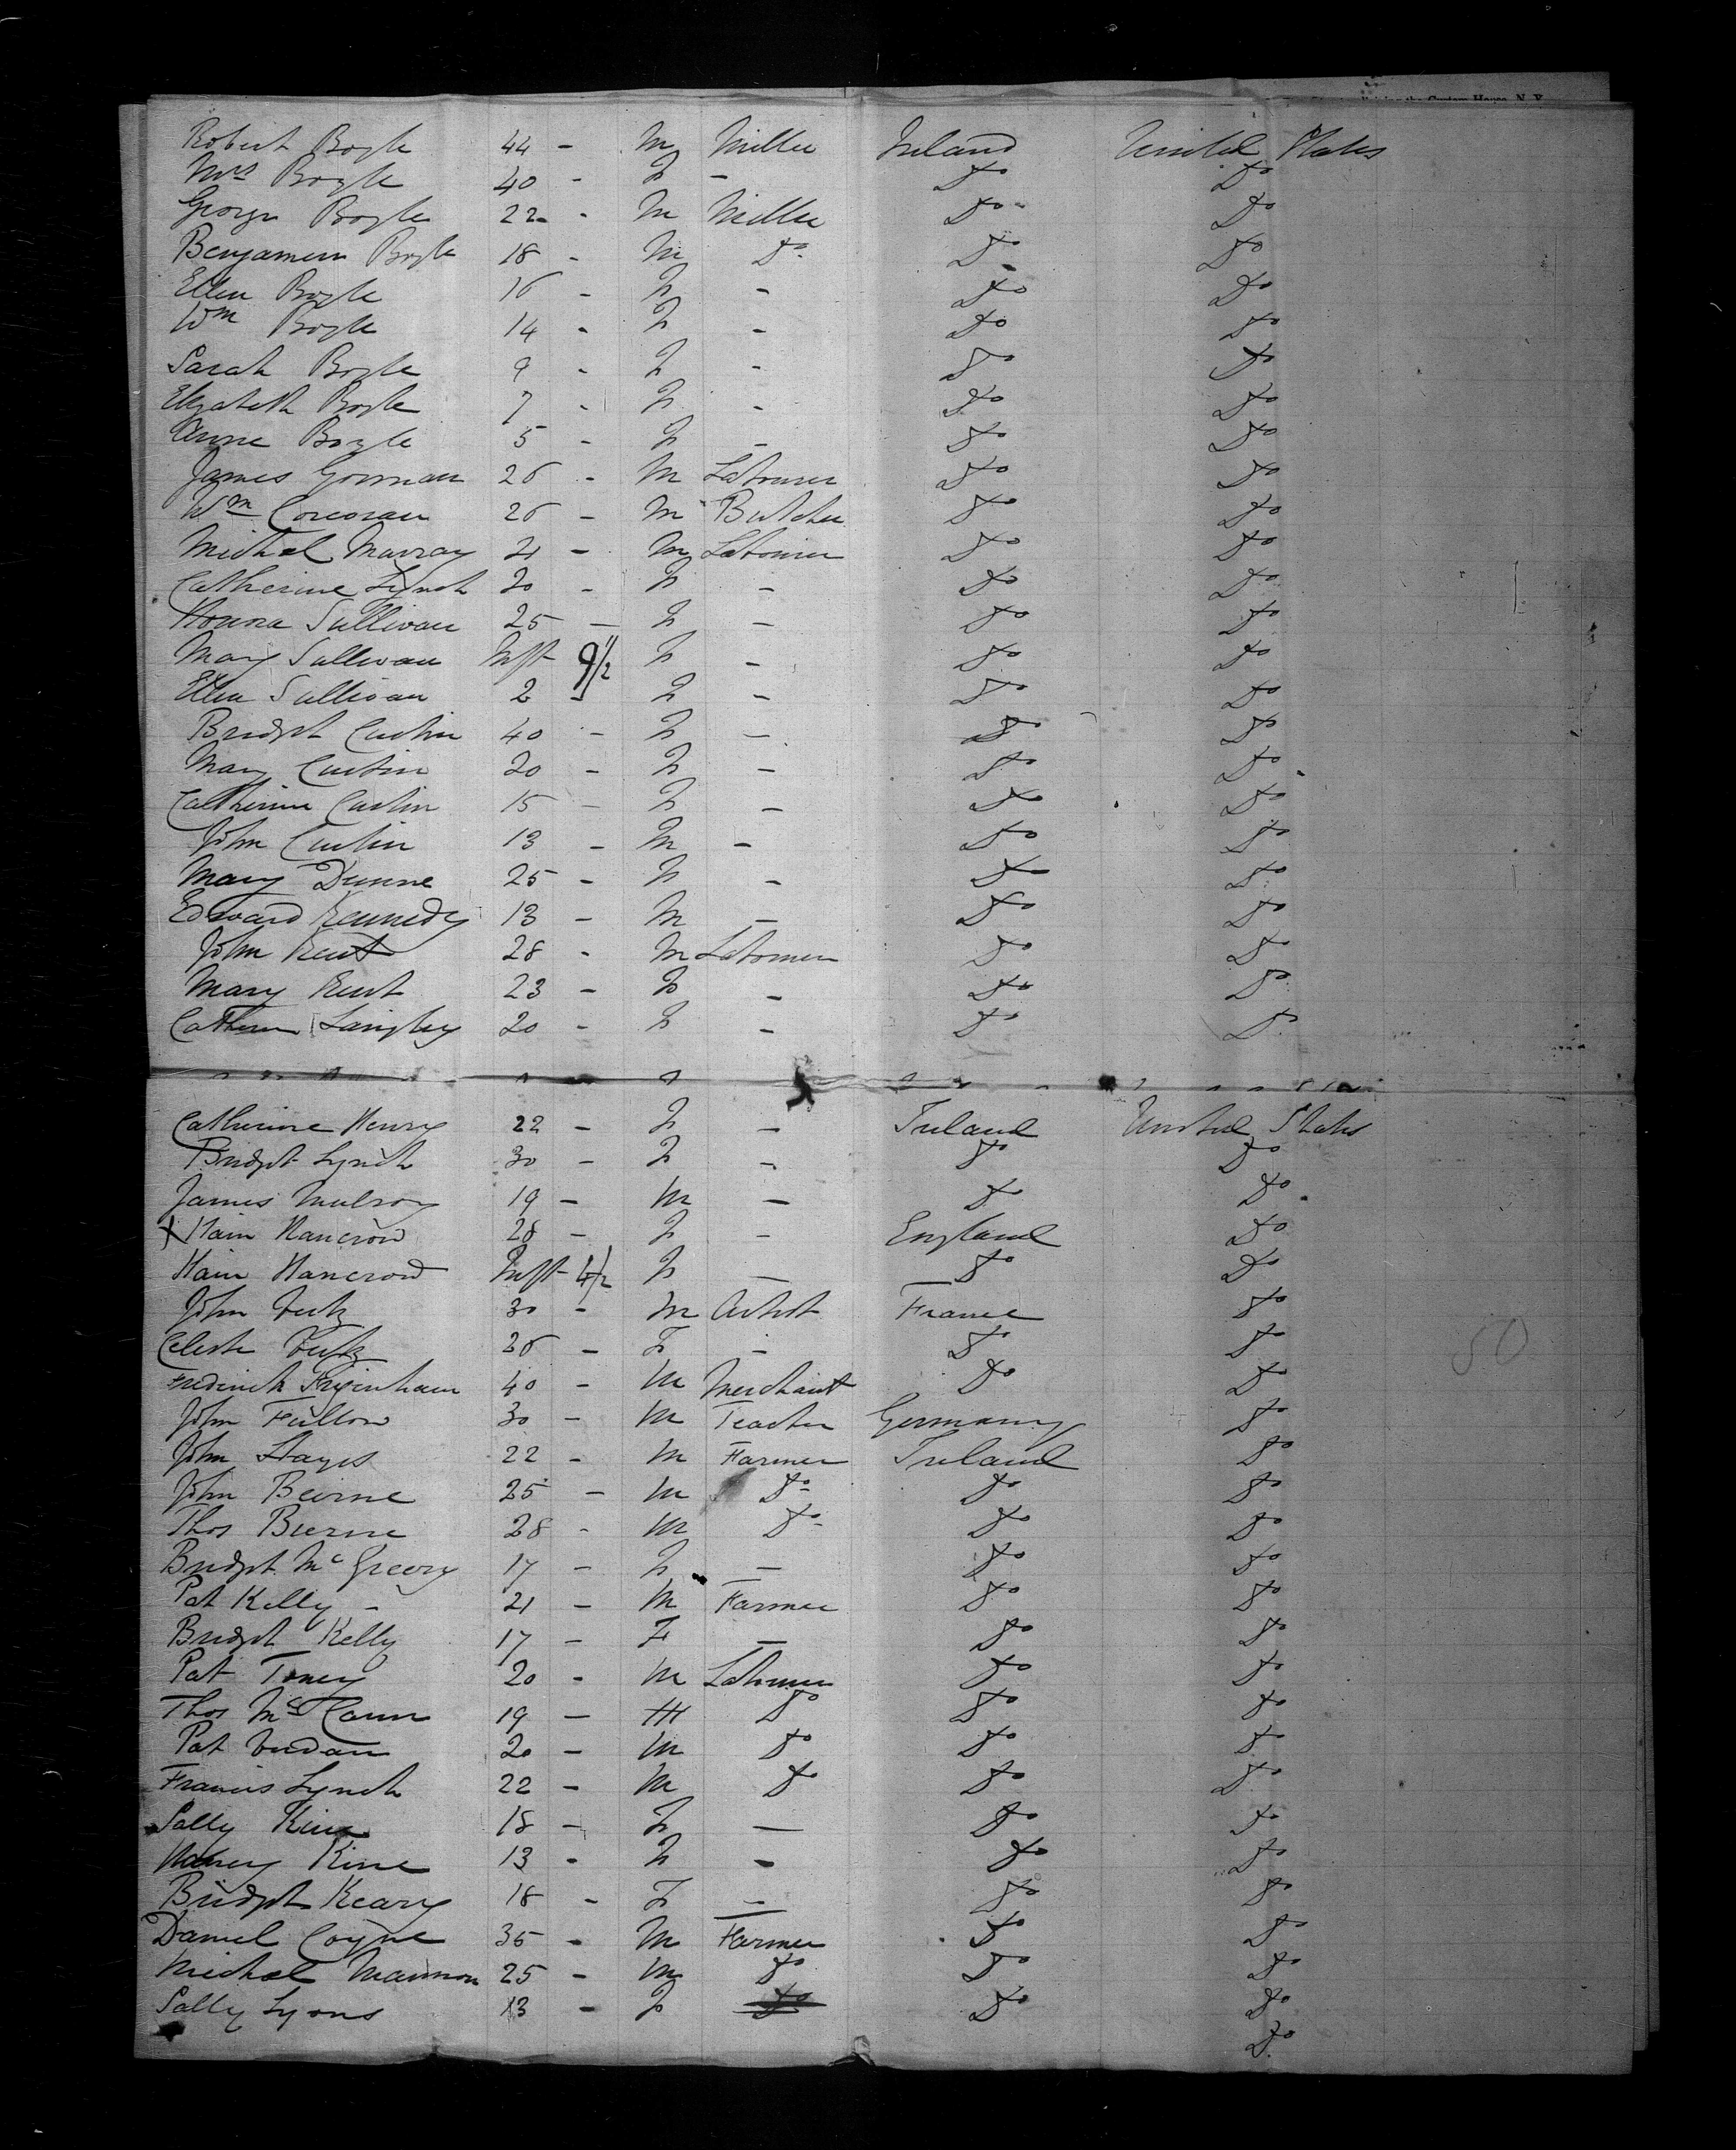 Robert Boyle 44 - M Miller Ireland United States
Mrs Boyle 40 - F - Do Do
George Boyle 22 - M Miller Do Do
Benjamin Boyle 18 - M Do Do Do
Ellen Boyle 16 - F - Do Do
Wm Boyle 14 - F - Do Do
Sarah Boyle 9 - F - Do Do
Elizabeth Boyle 7 - F - Do Do
Anne Boyle 5 - F - Do Do
James Gorman 26 - M Labourer Do Do
Wm Corcoran 26 - M Butcher Do Do
Michael Murray 21 - M Labourer Do Do
Catherine Lynch 20 - F - Do Do
Honora Sullivan 25 - F - Do Do
Mary Sullivan Inft F - Do Do
Ellen Sullivan 2 - F - Do Do
Bridget Curtin 40 - F - Do Do
Mary Curtin 20 - F - Do Do
Catherine Curtin 15 - F - Do Do
John Curtin 13 - M - Do Do
Mary Dunne 25 - F - Do Do
Edward Kennedy 13 - M - Do Do
John Kent 28 - M Labourer Do Do
Mary Kent 23 - F - Do Do
Cathern Langley 20 - F - Do Do
Catherine Henry 22 - F - Ireland United States
Bridget Lynch 30 - F - Do Do
James Mulroy 19 - M - Do Do
28 - F - England Do
Inft F - Do Do
John 30 - M Artist France Do
Celeste 26 - F - Do Do
Fredinck 40 - M Merchant Do Do
John Fullon 30 - M Teacher Germany Do
John Hayes 22 - M Farmer Ireland Do
John Beirne 25 - M Do Do Do
Thos Bierne 28 - M Do Do Do
Bridget McGreevy 17 - F - Do Do
Pat Kelly - 21 - M Farmer Do Do
Bridget Kelly 17 - F - Do Do
Pat Toney 20 - M Labourer Do Do
Thos McCann 19 - M Do Do Do
Pat 20 - M Do Do Do
Francis Lynch 22 - M Do Do Do
Sally Kine 18 - F - Do Do
Nancy Kine 13 - F - Do Do
Bridget Keary 18 - F - Do Do
Daniel Coyne 35 - M Farmer Do Do
Michael Mannion 25 - M Do Do Do
Sally Lyons 13 - F Do Do Do
Do
50